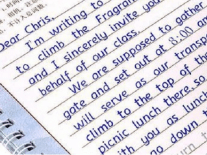 Dear Chris,
I'm writing to
to climb the Fragran
and I sincerely invite you
behalf of our class.
We are supposed to gather
gate and set out at 8:00 an
will serve as our transp
climb to the top of th
picnic lunch there, so
with you as lunch
no down t